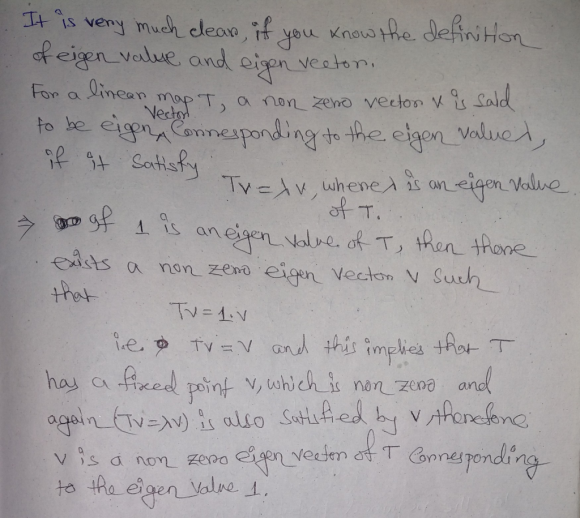 It is very much clear, if you know the definition
of eigen value and eigen vector.
For a linear map T, a non zero vector v is said
to be eigen vector corresponding to the eigen value λ,
if it satisfy
Tv = λv, where λ is an eigen value
of T.
⇒ If 1 is an eigen value of T, then there
exists a non zero eigen vector v such
that
Tv = 1.v
i.e. Tv = v and this implies that T
has a fixed point v, which is non zero and
again (Tv = λv) is also satisfied by v, therefore
v is a non zero eigen vector of T corresponding
to the eigen value 1.